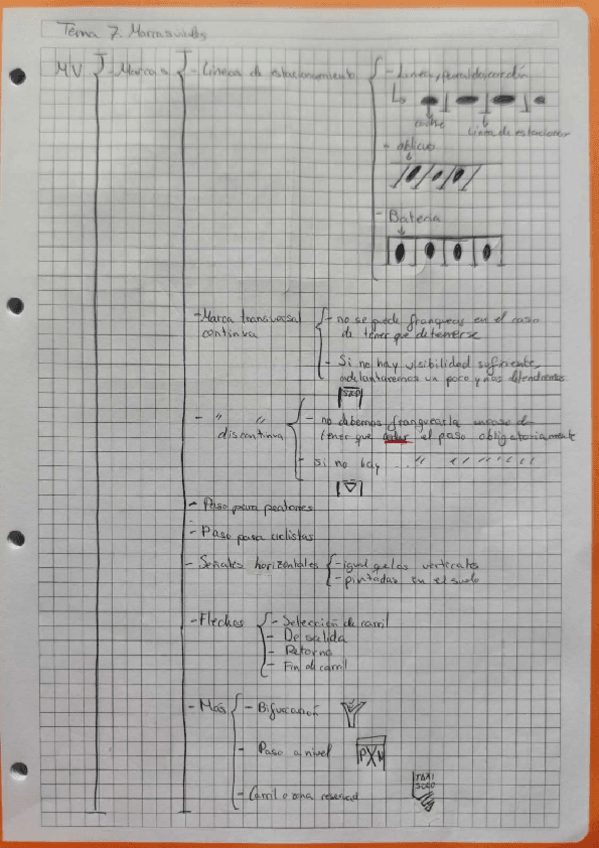 Tema 7. Marcas viales
MV - Marcas - Líneas de estacionamiento - Linea
coche
Línea de estacionar
- oblicuo
- Bateria
- Marca transversal
continua
- no se puede franquear en el caso
de tener que detenerse
- Si no hay visibilidad suficiente,
adelantaremos un poco y nos detendremos
STOP
- " "
discontinua
- no debemos franquearla en caso de
tener que ceder el paso obligatoriamente
- si no hay " " " " " "
- Paso para peatones
- Paso para ciclistas
- Señales horizontales
- igual que las verticales
- pintadas en el suelo
- Flechas
- Selección de carril
- De salida
- Retorno
- Fin de carril
- Más
- Bifurcación
- Paso a nivel
PXN
- Carril o zona reservad
TAXI
SOLO